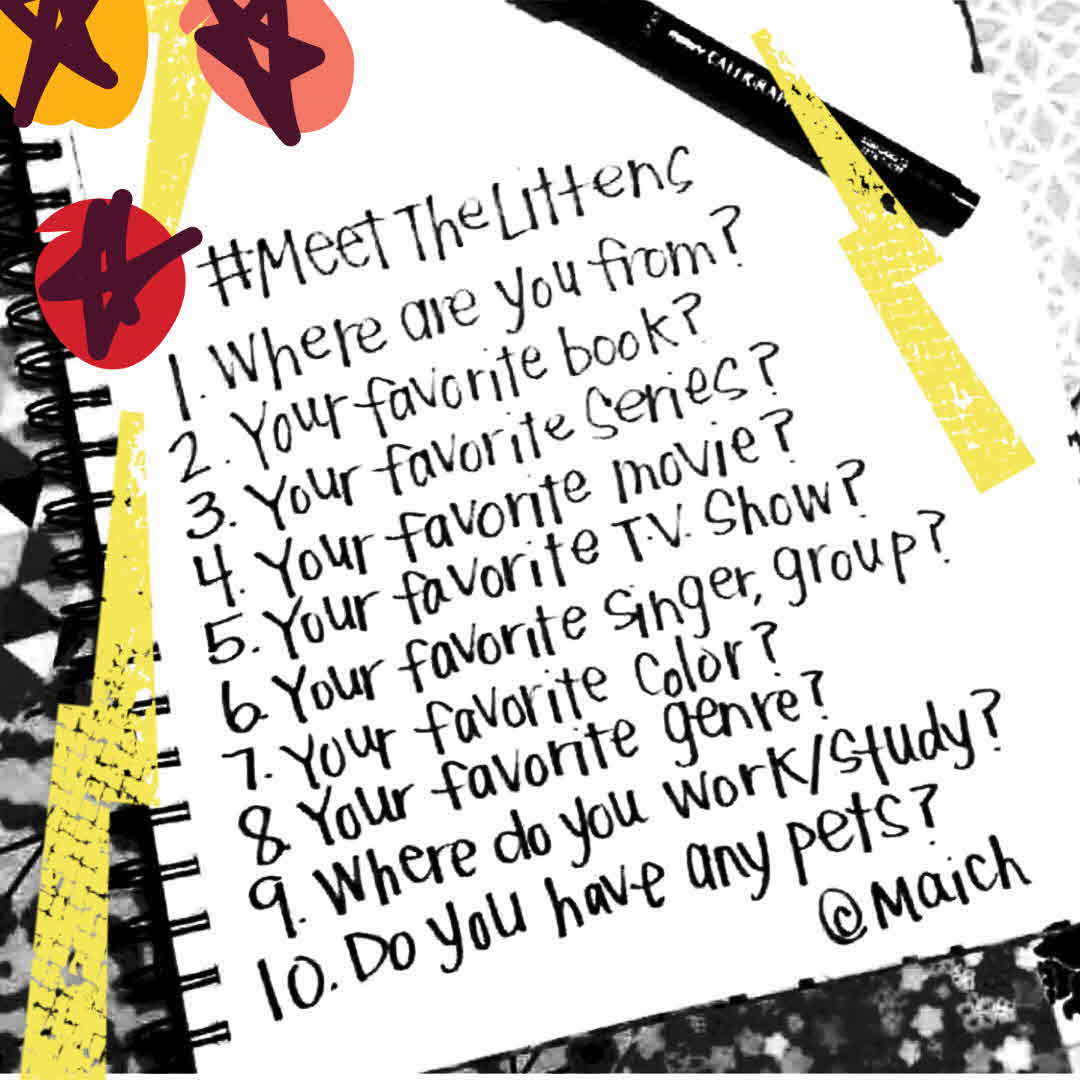 #MeetTheLittens
1. Where are you from?
2. Your favorite book?
3. Your favorite series?
4. Your favorite movie?
5. Your favorite T.V. Show?
6. Your favorite singer, group?
7. Your favorite color?
8. Your favorite genre?
9. Where do you work/study?
10. Do you have any pets?
@Maich